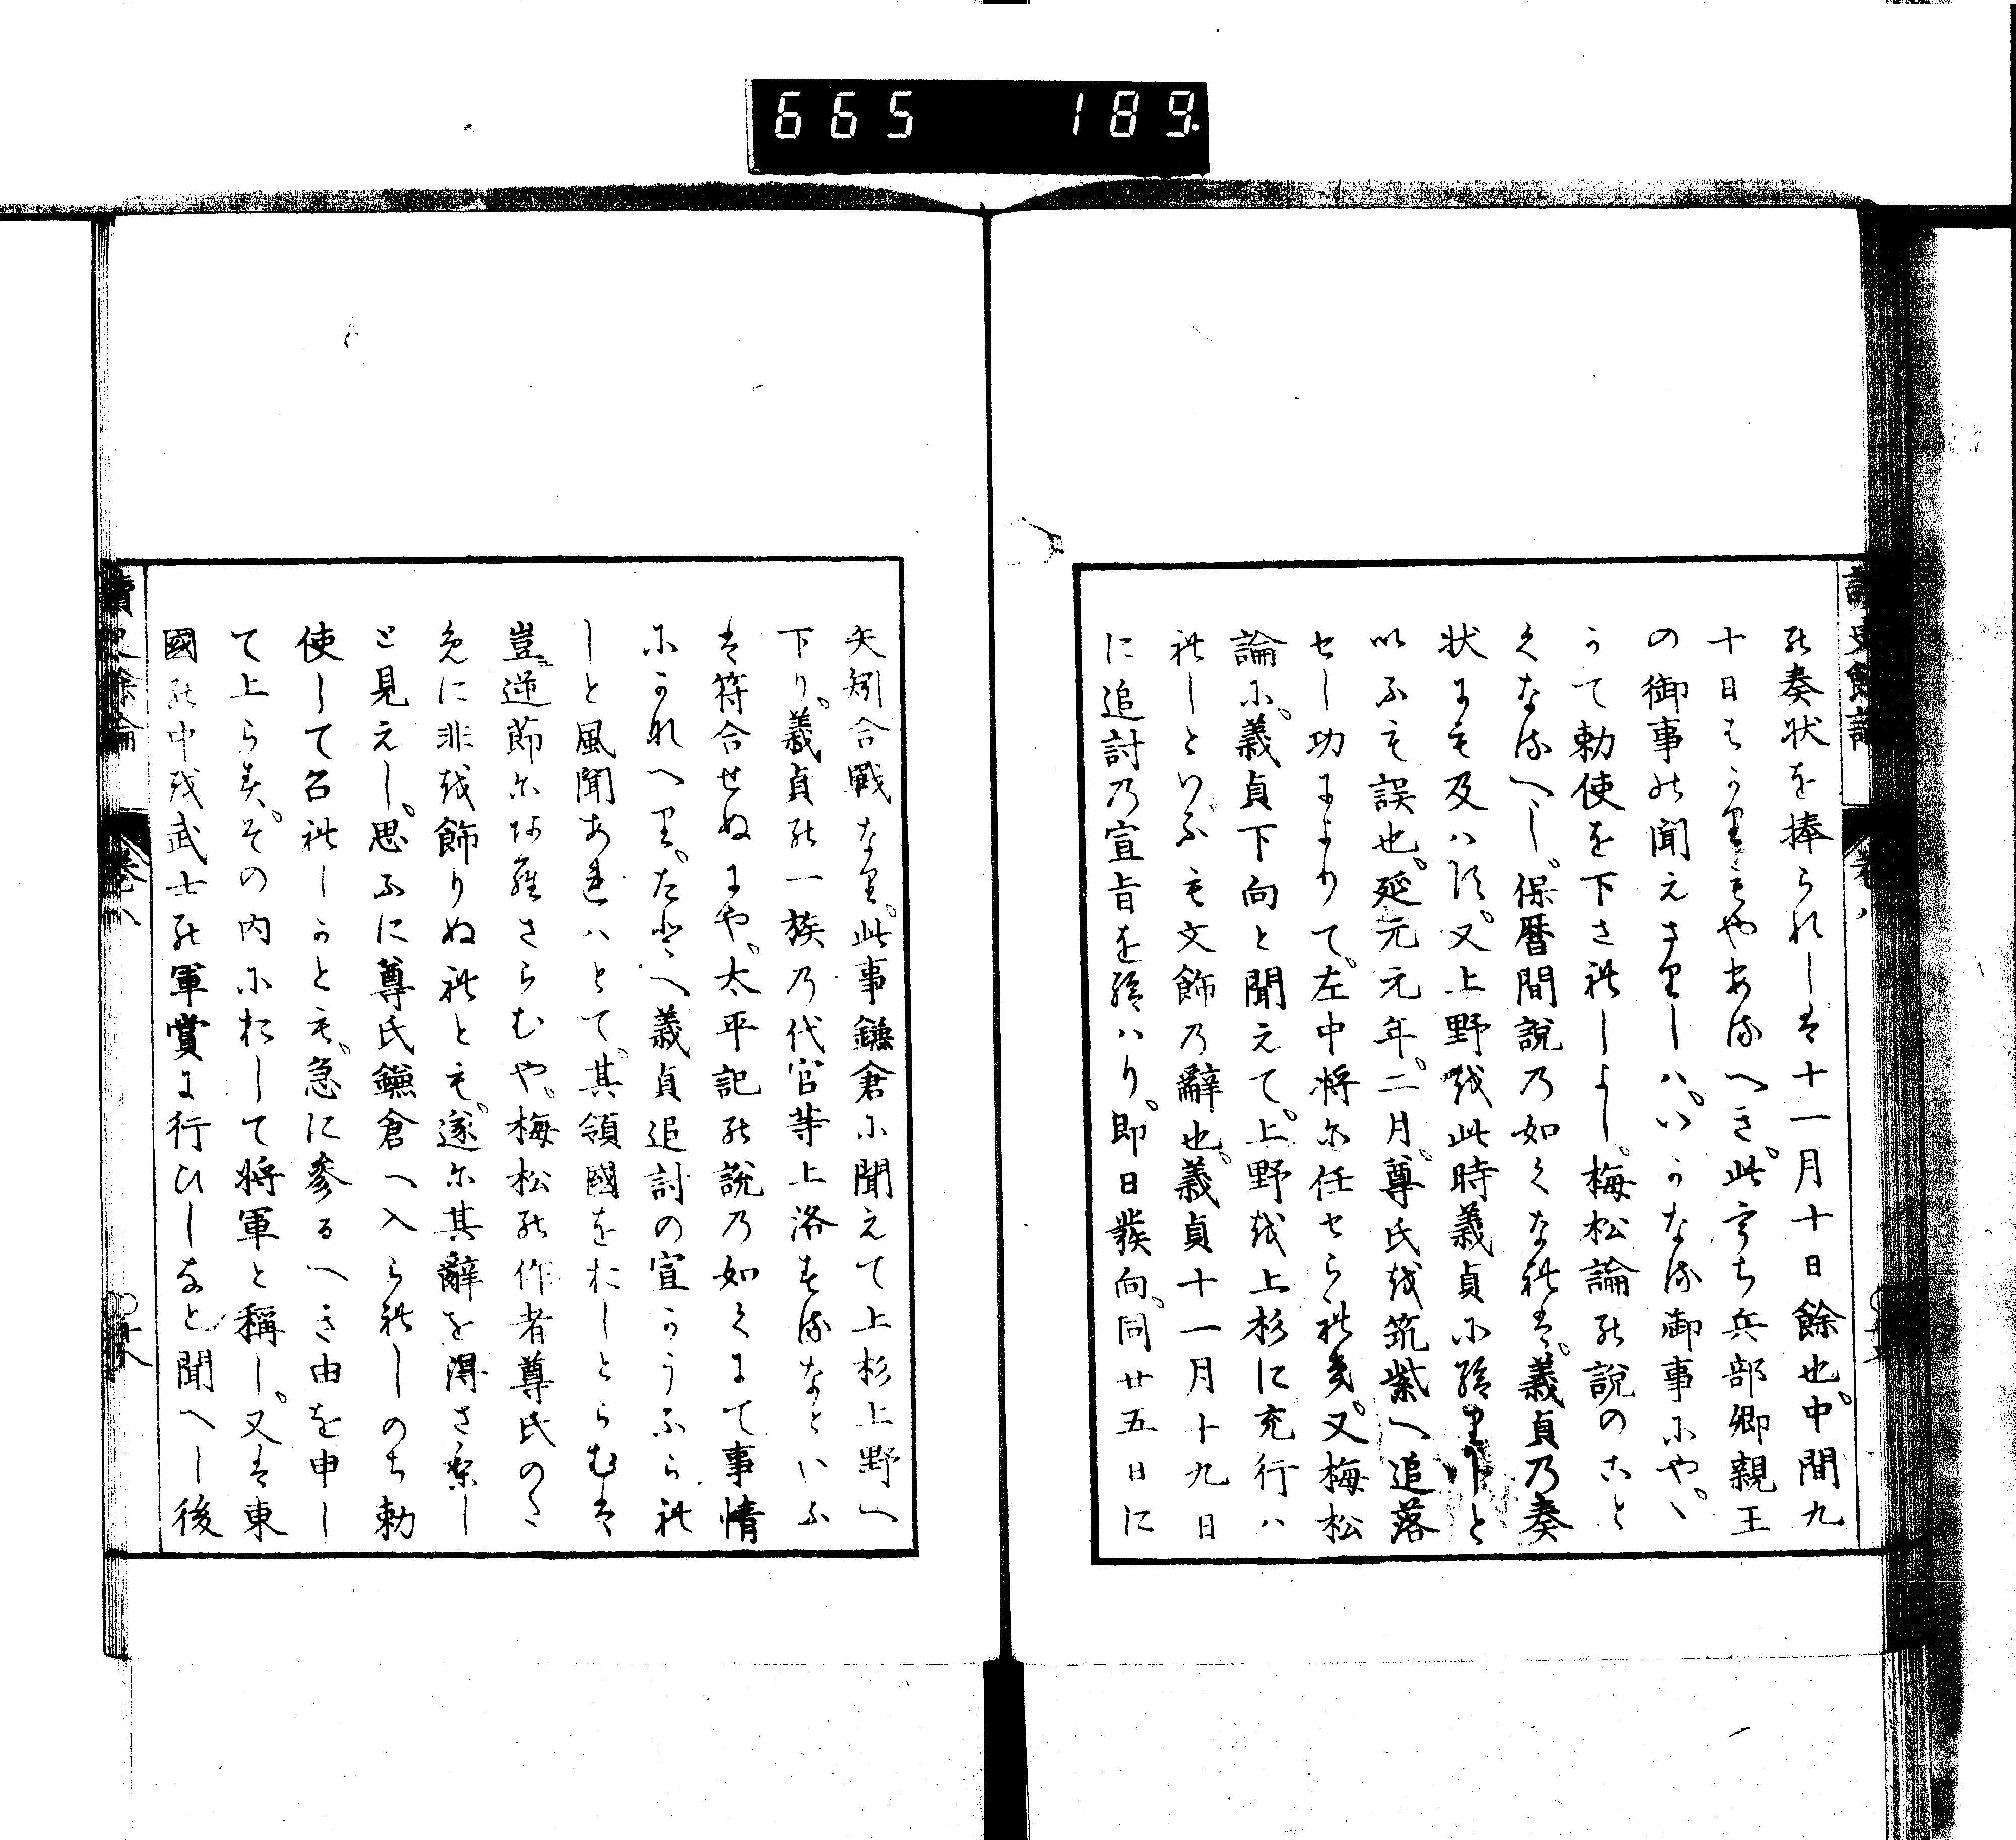 665 189
の奏状を捧られしは十一月十日餘也。中間九
十日はかりもやあるへき。此うち兵部卿親王
の御事の聞えさりしハ。いかなる御事にや。、
かて勅使を下されしよし。梅松論の説のこと
くなるへし。保暦間説乃如くなれは。義貞乃奏
状にも及ハす。又上野を此時義貞に給りしと
以ふも誤也。延元元年。二月。尊氏を筑紫へ追落
せし功によりて。左中将に任せられき。又梅松
論に。義貞下向と聞えて。上野を上杉に充行ハ
れしといふも文飾乃辭也。義貞十一月十九日
に追討乃宣旨を給ハり。即日發向。同廿五日に
矢矧合戰なり。此事鎌倉に聞えて上杉上野へ
下り。義貞の一族乃代官等上洛するなといふ
は符合せぬにや。太平記の説乃如くにて事情
にかなへり。たとへ義貞追討の宣かうふられ
しと風聞あれハとて。其領國をおしとらむは
豈逆節にあらさらむや。梅松の作者尊氏のた
免に非を飾りぬれとも。遂に其辭を得さりし
と見えし。思ふに尊氏鎌倉へ入られしのち勅
使して召れしかとも。急に參るへき由を申し
て上らす。その内におして将軍と稱し。又は東
國の中を武士の軍賞に行ひしなと聞へし後
讀史餘論 巻八